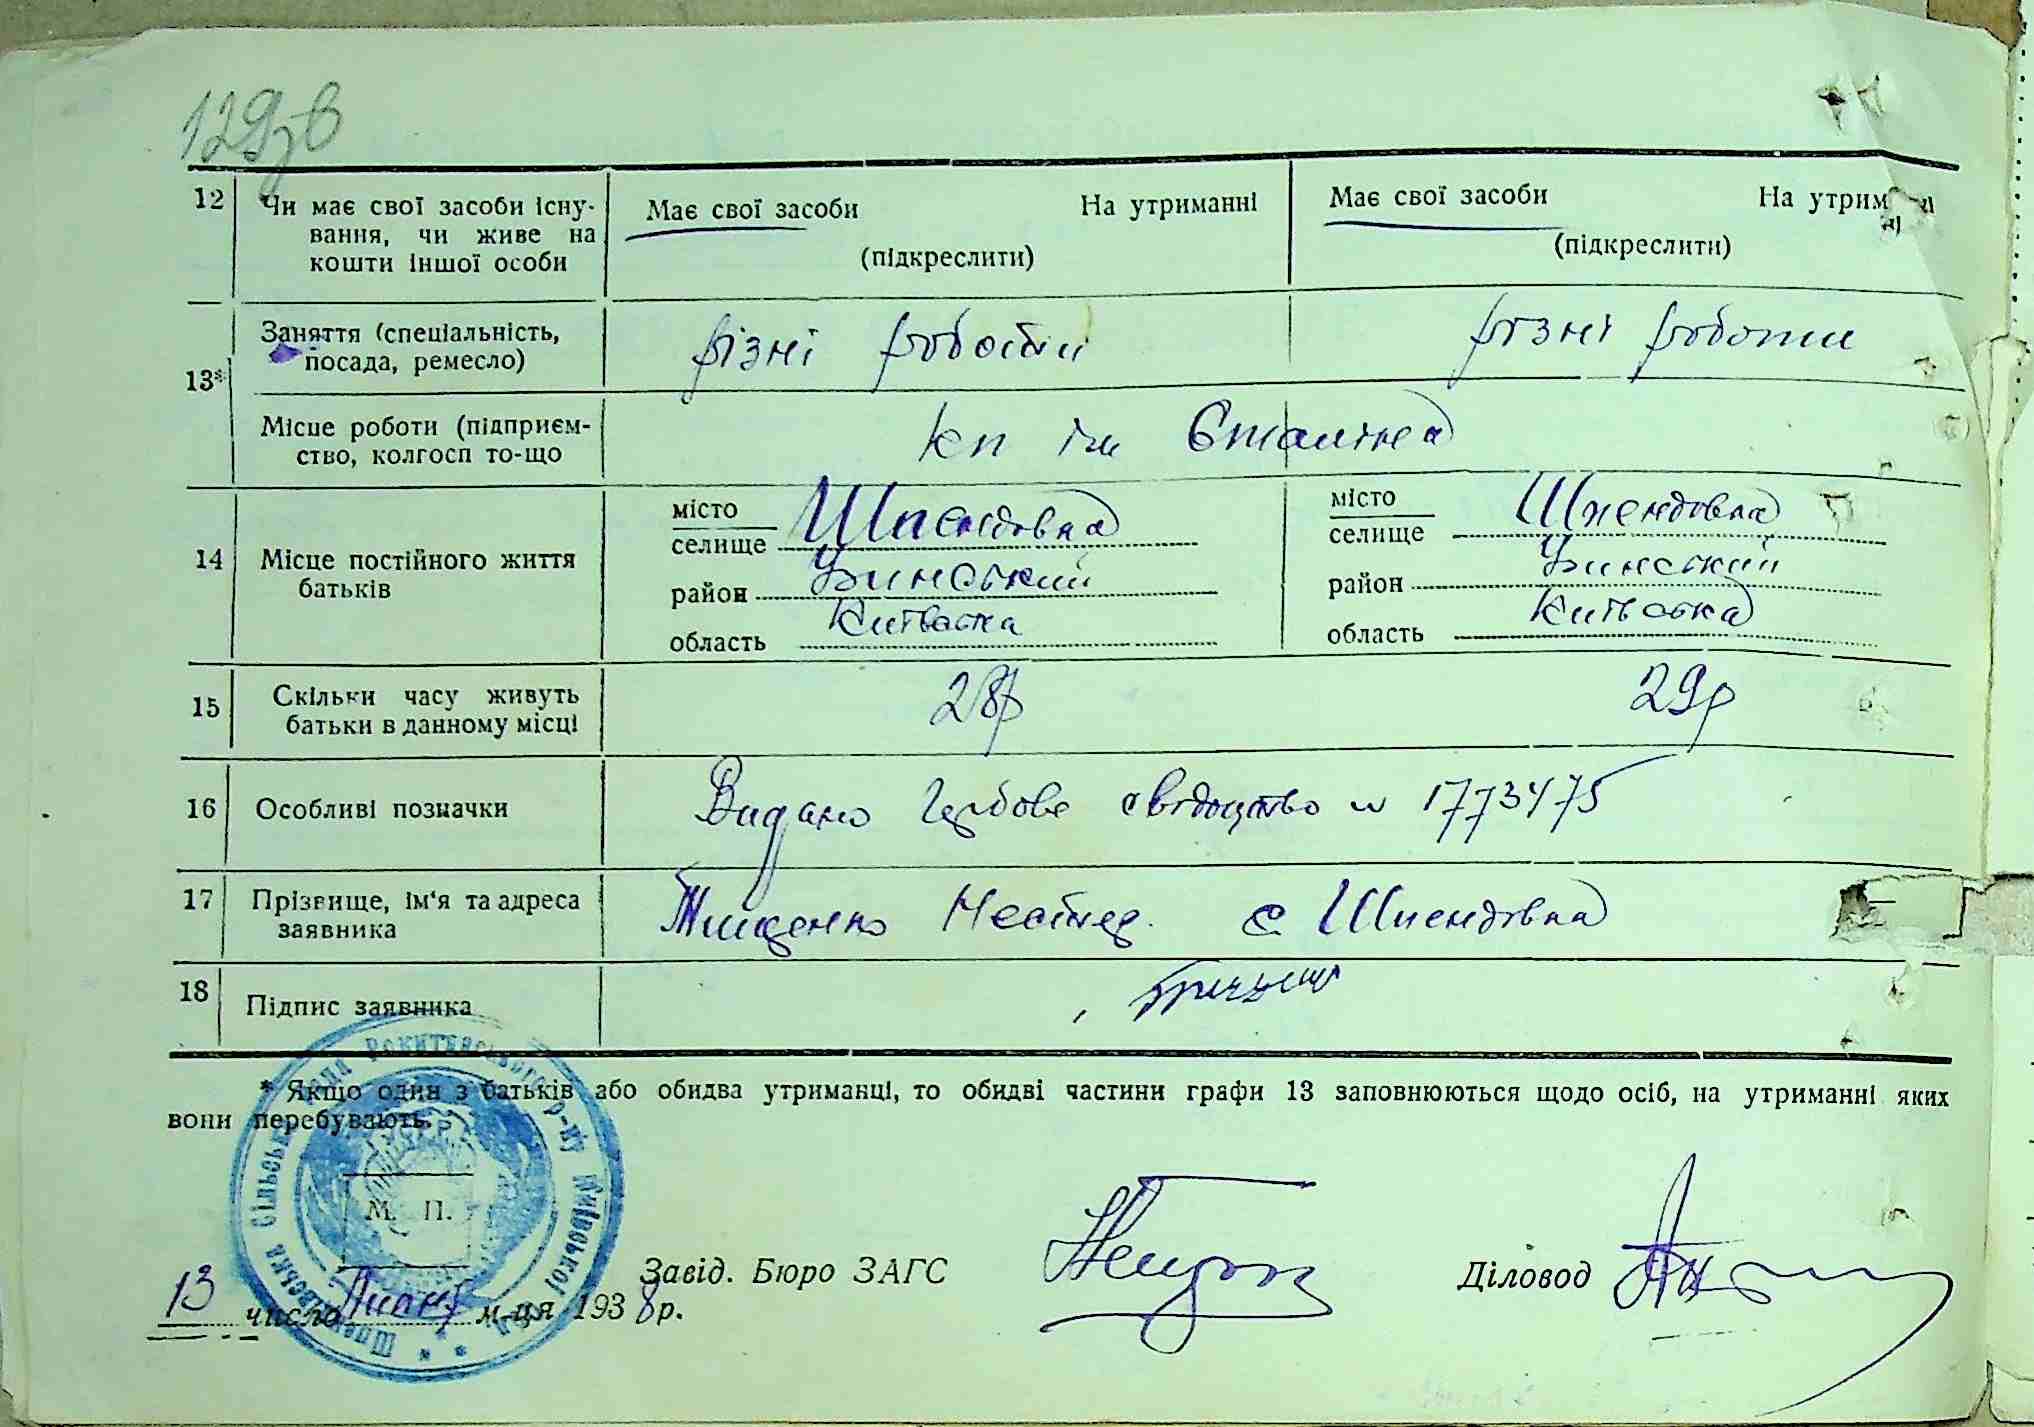 129зв
12 Чи має свої засоби існу- Має свої засоби На утриманні Має свої засоби На утрим
вання, чи живе на
кошти іншої особи (підкреслити) (підкреслити)
13* Заняття (спеціальність, різні роботи різні роботи
посада, ремесло)
Місце роботи (підприєм- кп ім Сталіна
ство, колгосп то-що
14 Місце постійного життя батьків
місто Шпендовка місто Шпендовка
селище селище
район Узинський район Узинський
область Київська область Київська
15 Скільки часу живуть 28р 29р
батьки в данному місці
16 Особливі позначки Видано Гербове свідоцтво № 1773475
17 Прізвище, ім'я та адреса Тищенко Нестер с Шпендовка
заявника
18 Підпис заявника
* Якщо один з батьків або обидва утриманці, то обидві частини графи 13 заповнюються щодо осіб, на утриманні яких
вони перебувають.
М. П.
Сільська Рада Рокитянського р-ну Київської
Завід. Бюро ЗАГС Діловод
13 число Липня м-ця 1938р.